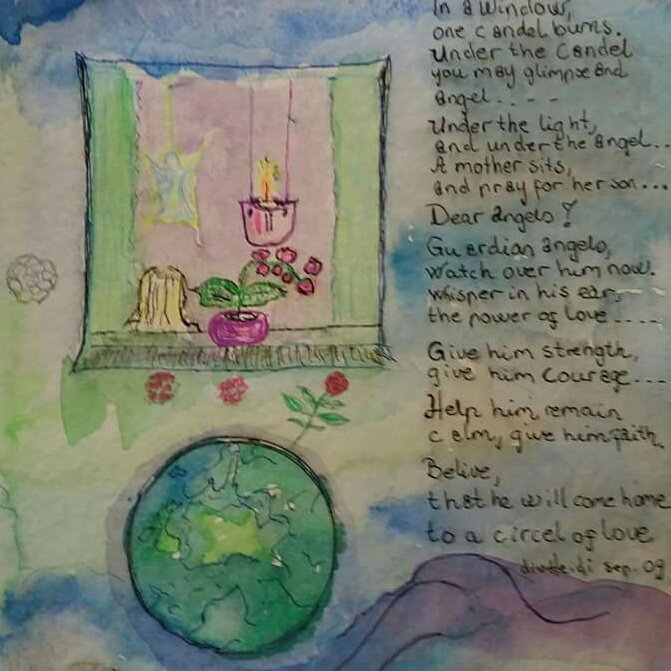 In a Window,
one candel burns.
Under the Candel
you may glimpse and
angel....
Under the light,
and under the angel...
A mother sits,
and pray for her son...
Dear angels!
Guardian angels,
watch over him now.
whisper in his ear,
the power of love.....
Give him strength,
give him courage...
Help him remain
calm, give him faith.
Belive,
that he will come home
to a circel of love
sep. 09